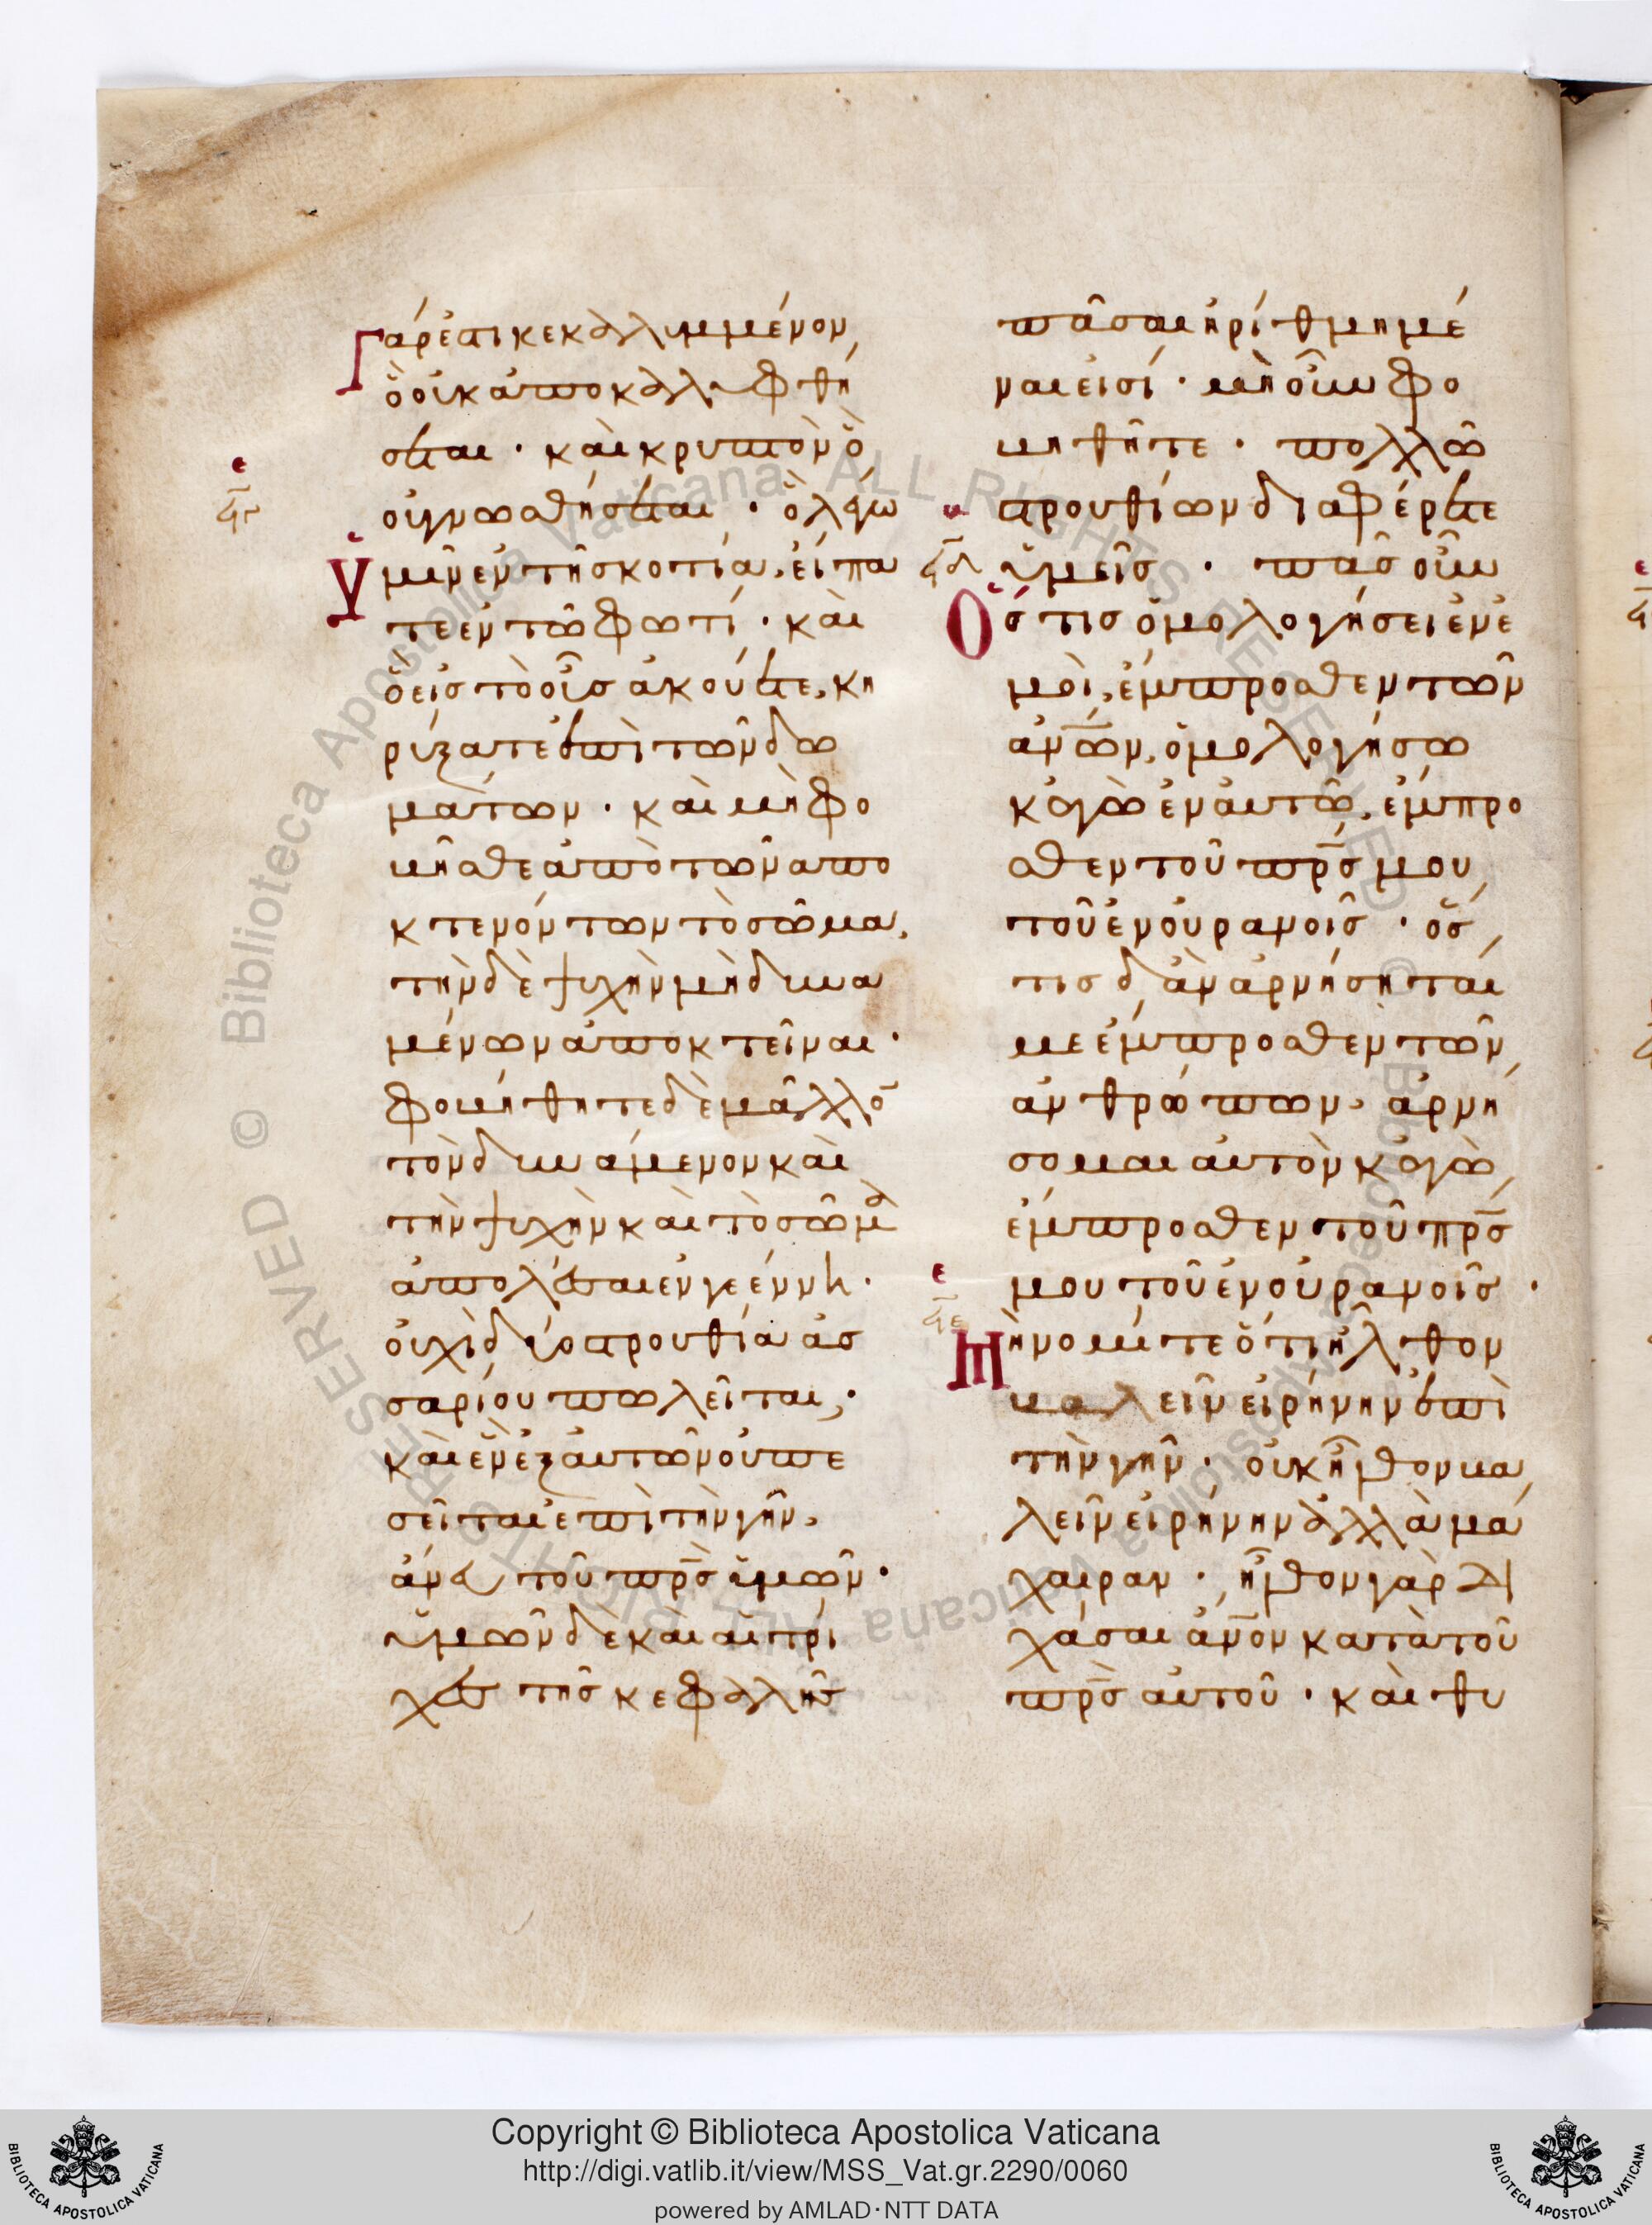 Γάρ ἐστι κεκαλυμμένον,
ὃ οὐκ ἀποκαλυφθή
σεται · καὶ κρυπτὸν ὃ
οὐ γνωσθήσεται · ὃ λέγω
Ὑμῖν ἐν τῇ σκοτία, εἴπα
τε ἐν τῶ φωτί · καὶ
ὃ εἰς τὸ οὖς ἀκούετε, κη
ρύξατε ἐπὶ τῶν δω
μάτων · καὶ μὴ φο
βῆσθε ἀπὸ τῶν ἀπο
κτενόντων τὸ σῶμα,
τὴν δὲ ψυχὴν μὴ δυνα
μένων ἀποκτεῖναι ·
φοβήθητε δὲ μᾶλλο̄
τὸν δυνάμενον καὶ
τὴν ψυχὴν καὶ τὸ σῶμα
ἀπολέσαι ἐν γεέννη ·
οὐχὶ δύο στρουθία ἀσ
σαρίου πωλεῖται; ·
καὶ ἓν ἐξ αὐτῶν οὐ πε
σεῖται ἐπὶ τὴν γῆν,
ἄνευ τοῦ πρ̅ς ὑμῶν ·
ὑμῶν δὲ καὶ αἱ τρί
χες τῆς κεφαλῆς
πᾶσαι ἠριθμημέ
ναι εἰσί · μὴ οὖν φο
βηθῆτε · πολλῶ
στρουθίων διαφέρετε
ὑμεῖς · πᾶς οὖν
Ὅς τις ὁμολογήσει ἐν ἐ
μοὶ, ἔμπροσθεν τῶν
ἀν̅ων, ὁμολογήσω
κἀγὼ ἐν αὐτῶ, ἔμπρο
σθεν τοῦ πρ̅ς μου,
τοῦ ἐν οὐρανοῖς · ὅς
τις δ' ἂν ἀρνήσηταί
με ἔμπροσθεν τῶν
ἀνθρώπων, ἀρνή
σομαι αὐτὸν κἀγὼ,
ἔμπροσθεν τοῦ πρ̅ς
μου τοῦ ἐν οὐρανοῖς ·
Μὴ νομίσητε ὅτι ἦλθον
βαλεῖν εἰρήνην ἐπὶ
τὴν γῆν · οὐκ ἦλθον βα
λεῖν εἰρήνην ἀλλὰ μά
χαιραν · ἦλθον γὰρ δι
χάσαι ἄν̅ον κατὰ τοῦ
πρ̅ς αὐτοῦ · καὶ θυ
Copyright © Biblioteca Apostolica Vaticana
http://digi.vatlib.it/view/MSS_Vat.gr.2290/0060
powered by AMLAD·NTT DATA